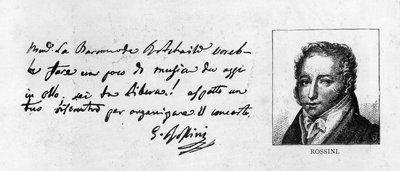 Mad. La Baronne de Rotschild voreb-
be fare un poco di musica da oggi
in otto. sei tu Libera! aspetto un
tuo per organizzare il concerto.
G. Rossini
ROSSINI.